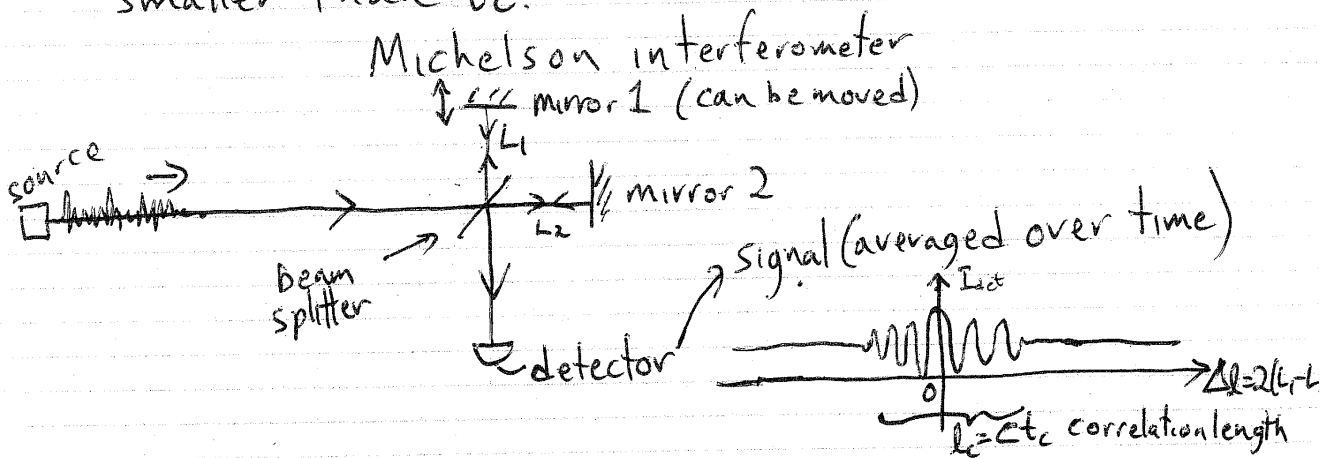 smaller than
Michelson interferometer
mirror 1 (can be moved)
L₁
source
mirror 2
L₂
beam
splitter
signal (averaged over time)
detector
0
Δl=2(L₁-L
l_c=ct_c correlation length